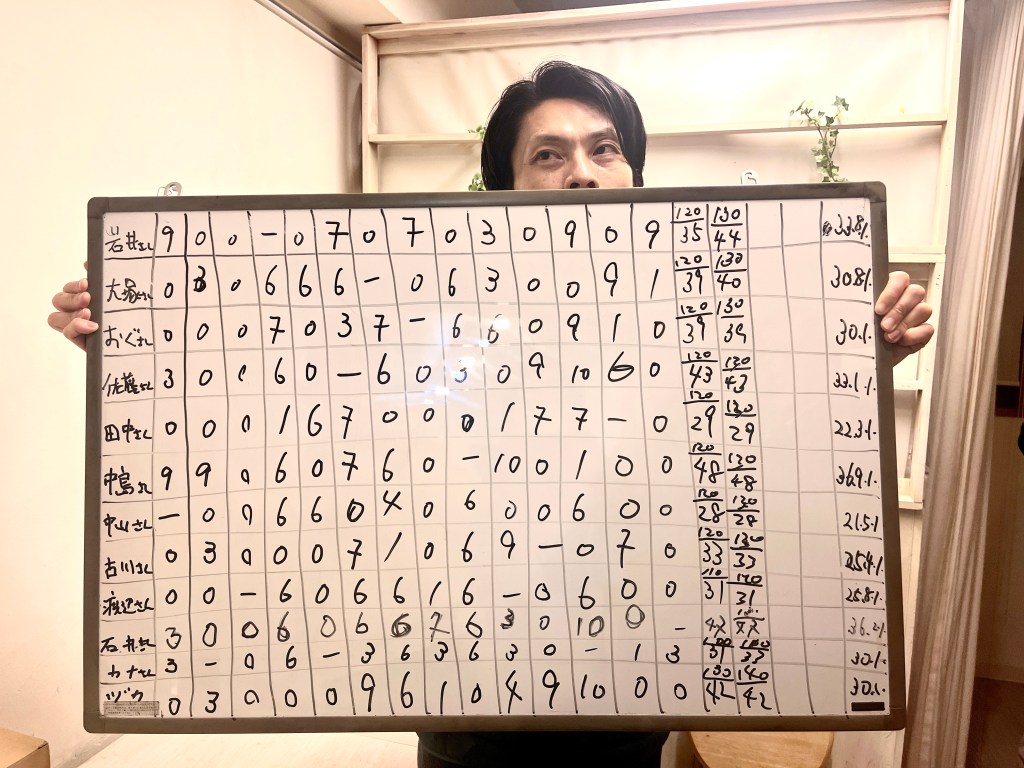 岩井さん 9 0 0 - 0 7 0 7 0 3 0 9 0 9 120/35 130/44 33.8%
大塚さん 0 3 0 6 6 6 - 0 6 3 0 0 9 1 120/39 130/40 30.8%
おぐさん 0 0 0 7 0 3 7 - 6 6 0 9 1 0 120/39 130/39 30.%
佐藤さん 3 0 1 6 0 - 6 0 3 0 9 10 6 0 120/43 130/43 33.1%
田中さん 0 0 0 1 6 7 0 0 0 1 7 7 - 0 120/29 130/29 22.3%
中島さん 9 9 0 6 0 7 6 0 - 10 0 1 0 0 120/48 130/48 36.9%
中山さん - 0 0 6 6 0 4 0 6 0 0 6 0 0 120/28 130/28 21.5%
古川さん 0 3 0 0 0 7 1 0 6 9 - 0 7 0 120/33 130/33 25.4%
渡辺さん 0 0 - 6 0 6 6 1 6 - 0 6 0 0 110/31 120/31 25.8%
石井さん 3 0 0 6 0 6 6 7 6 3 0 10 0 - 36.2%
カナさん 3 - 0 6 - 3 6 3 6 3 0 - 1 3 30.%
ツヅク 0 3 0 0 0 9 6 1 0 4 9 10 0 0 130/42 140/42 30.%